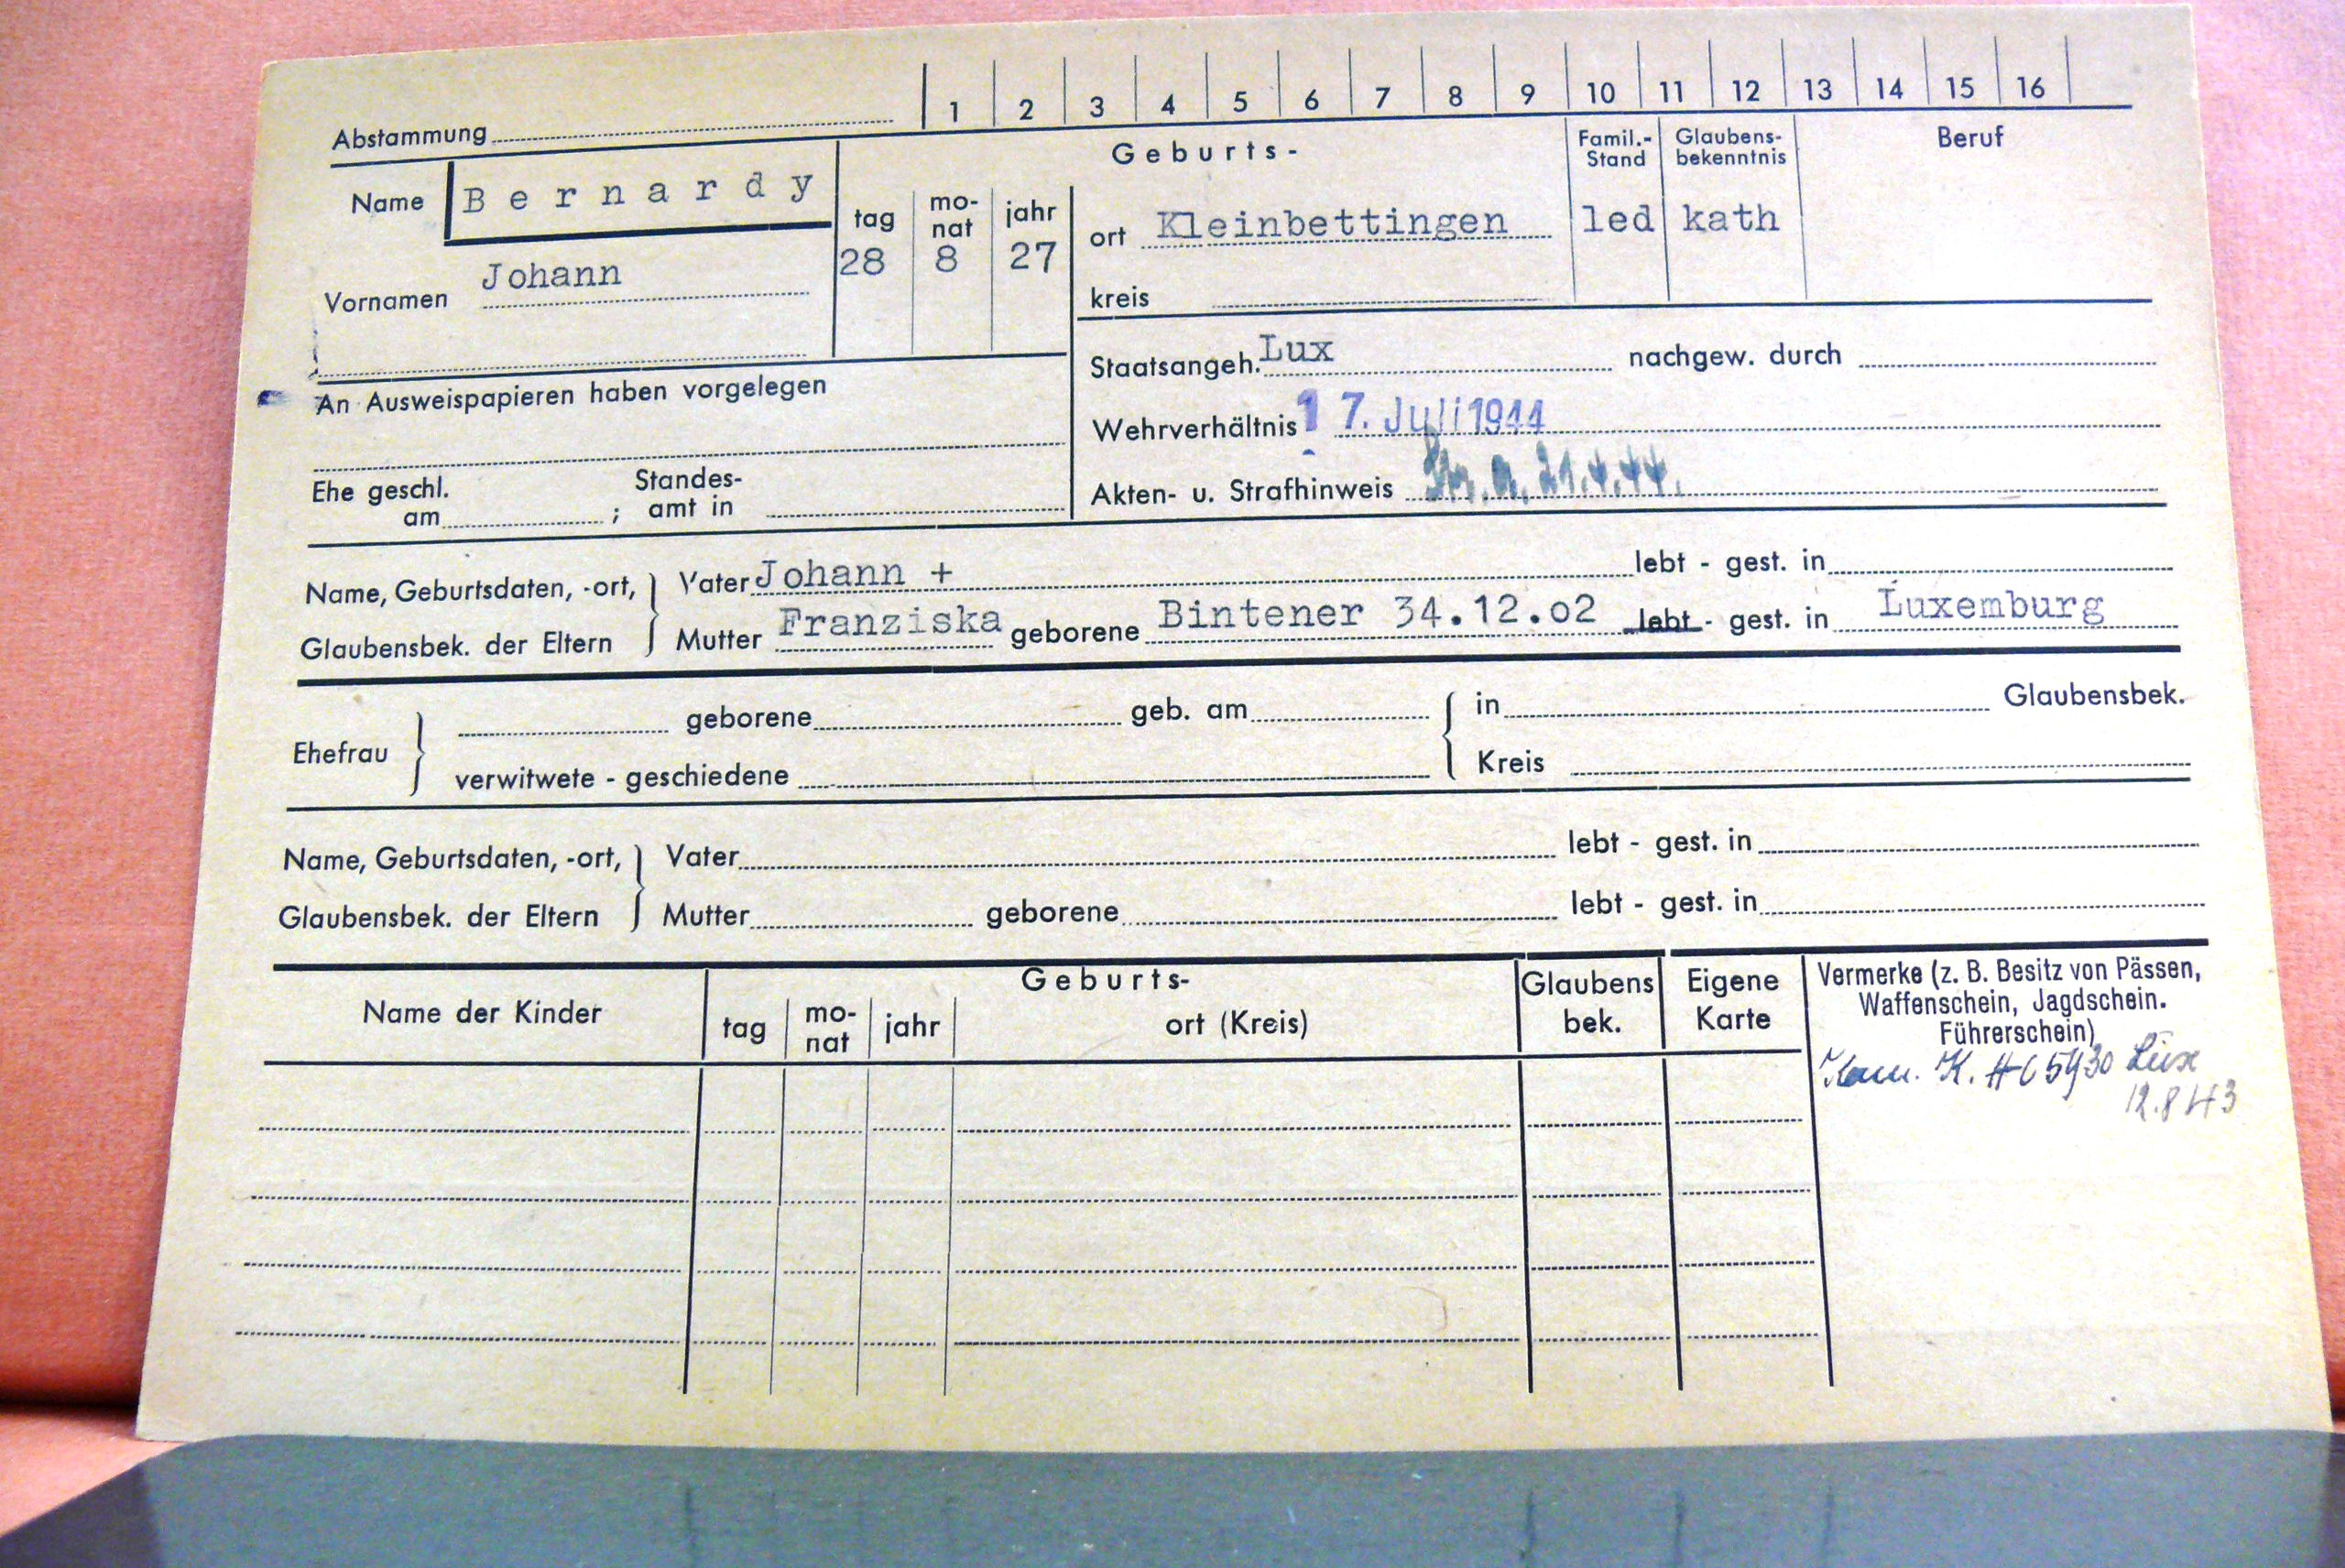 1 2 3 4 5 6 7 8 9 10 11 12 13 14 15 16
Abstammung
Name Bernardy
Vornamen Johann
Geburts-
tag mo-nat jahr
28 8 27
ort Kleinbettingen
kreis
Famil.-Stand
led
Glaubens-bekenntnis
kath
Beruf
An Ausweispapieren haben vorgelegen
Ehe geschl. am ; Standes-amt in
Staatsangeh. Lux nachgew. durch
Wehrverhältnis 17. Juli 1944
Akten- u. Strafhinweis
Name, Geburtsdaten, -ort, Vater Johann + lebt - gest. in
Glaubensbek. der Eltern Mutter Franziska geborene Bintener 34.12.02 lebt - gest. in Luxemburg
Ehefrau
geborene geb. am in Glaubensbek.
verwitwete - geschiedene Kreis
Name, Geburtsdaten, -ort, Vater lebt - gest. in
Glaubensbek. der Eltern Mutter geborene lebt - gest. in
Name der Kinder
Geburts-
tag mo-nat jahr ort (Kreis)
Glaubens bek.
Eigene Karte
Vermerke (z. B. Besitz von Pässen,
Waffenschein, Jagdschein.
Führerschein)
K. Lux
12.8 43